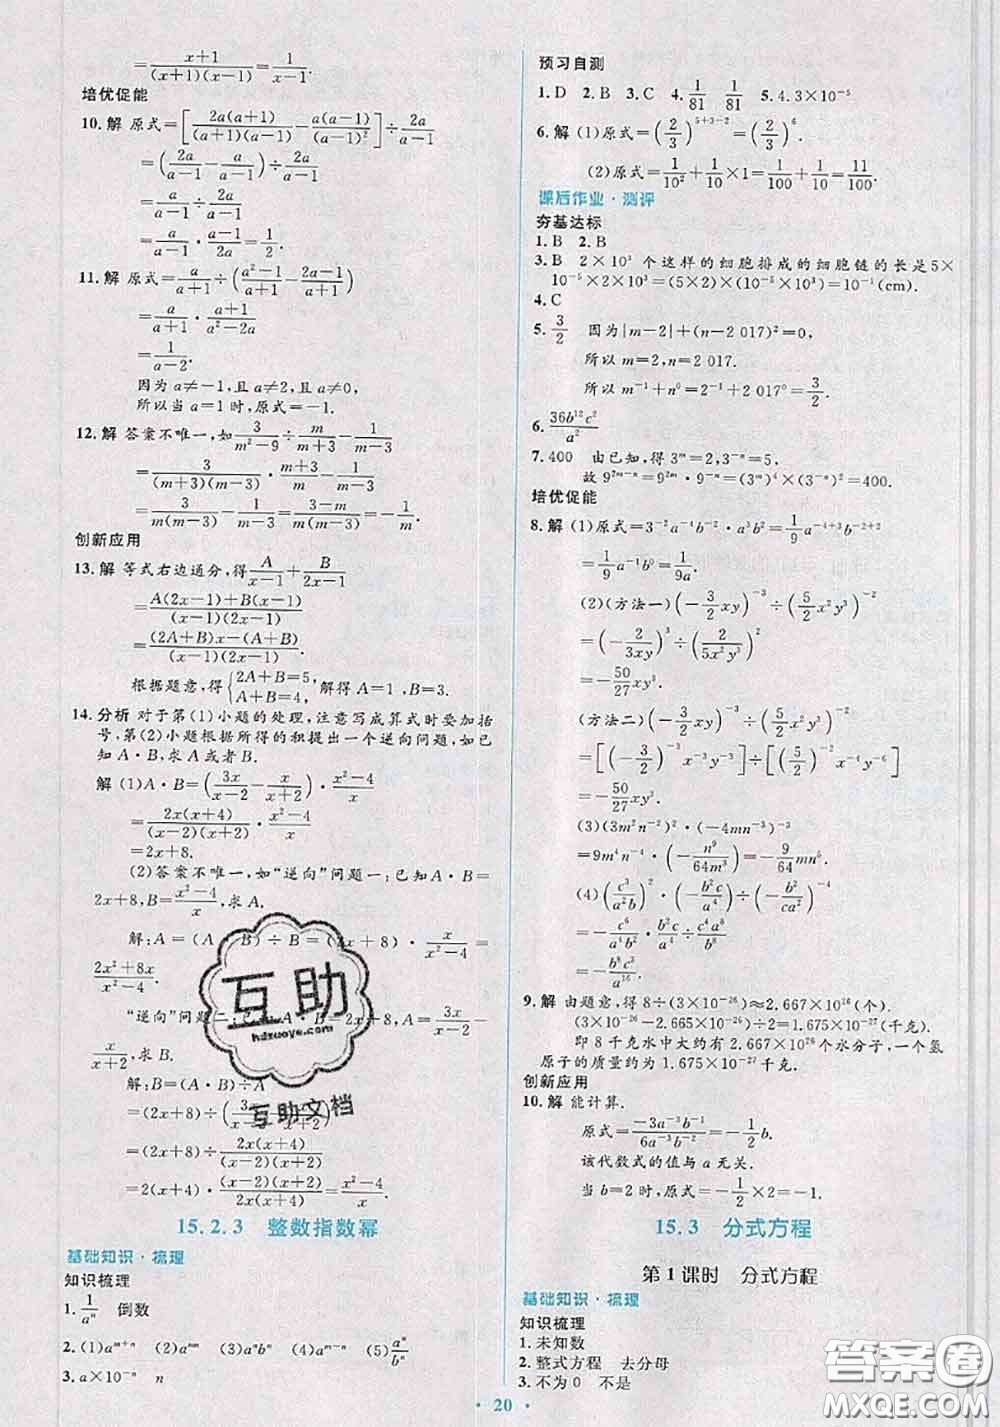 =\frac{x+1}{(x+1)(x-1)}=\frac{1}{x-1}.
培优促能
10.解 原式=[\frac{2a(a+1)}{(a+1)(a-1)}-\frac{a(a-1)}{(a-1)^2}]÷\frac{2a}{a-1}
=(\frac{2a}{a-1}-\frac{a}{a-1})÷\frac{2a}{a-1}
=\frac{a}{a-1}÷\frac{2a}{a-1}
=\frac{a}{a-1}·\frac{a-1}{2a}=\frac{1}{2}.
11.解 原式=\frac{a}{a+1}÷(\frac{a^2-1}{a+1}-\frac{2a-1}{a+1})
=\frac{a}{a+1}·\frac{a+1}{a^2-2a}
=\frac{1}{a-2}.
因为a≠-1,且a≠2,且a≠0,
所以当a=1时,原式=-1.
12.解 答案不唯一,如\frac{3}{m^2-9}÷\frac{m}{m+3}-\frac{1}{m-3}
=\frac{3}{(m+3)(m-3)}·\frac{m+3}{m}-\frac{1}{m-3}
=\frac{3}{m(m-3)}-\frac{m}{m(m-3)}=-\frac{1}{m}.
创新应用
13.解 等式右边通分,得\frac{A}{x-1}+\frac{B}{2x-1}
=\frac{A(2x-1)+B(x-1)}{(x-1)(2x-1)}
=\frac{(2A+B)x-(A+B)}{(x-1)(2x-1)},
根据题意,得{2A+B=5, A+B=4, 解得A=1,B=3.
14.分析 对于第(1)小题的处理,注意写成算式时要加括
号,第(2)小题根据所得的积提出一个逆向问题,如已
知A·B,求A或者B.
解 (1)A·B=(\frac{3x}{x-2}-\frac{x}{x+2})·\frac{x^2-4}{x}
=\frac{2x(x+4)}{(x-2)(x+2)}·\frac{x^2-4}{x}
=2x+8.
(2)答案不唯一,如“逆向”问题一:已知A·B=
2x+8,B=\frac{x^2-4}{x},求A.
解:A=(A·B)÷B=(2x+8)·\frac{x}{x^2-4}=
\frac{2x^2+8x}{x^2-4}.
“逆向”问题二:已知A·B=2x+8,A=\frac{3x}{x-2}-
\frac{x}{x+2},求B.
解:B=(A·B)÷A
=(2x+8)÷(\frac{3x}{x-2}-\frac{x}{x+2})
=(2x+8)÷\frac{2x(x+4)}{(x-2)(x+2)}
=2(x+4)·\frac{(x-2)(x+2)}{2x(x+4)}=\frac{x^2-4}{x}.
15.2.3 整数指数幂
基础知识·梳理
知识梳理
1.\frac{1}{a^n} 倒数
2.(1)a^{m+n} (2)a^{mn} (3)a^nb^n (4)a^{m-n} (5)\frac{a^n}{b^n}
3.a×10^{-n} n
预习自测
1.D 2.B 3.C 4.\frac{1}{81} \frac{1}{81} 5.4.3×10^{-5}
6.解 (1)原式=(\frac{2}{3})^{5+3-2}=(\frac{2}{3})^6.
(2)原式=\frac{1}{10^2}+\frac{1}{10}×1=\frac{1}{100}+\frac{1}{10}=\frac{11}{100}.
课后作业·测评
夯基达标
1.B 2.B
3.B 2×10^3 个这样的细胞排成的细胞链的长是5×
10^{-5}×2×10^3=(5×2)×(10^{-5}×10^3)=10^{-1}(cm).
4.C
5.\frac{3}{2} 因为|m-2|+(n-2 017)^2=0,
所以m=2,n=2 017.
所以m^{-1}+n^0=2^{-1}+2 017^0=\frac{3}{2}.
6.\frac{36b^{12}c^2}{a^2}
7.400 由已知,得3^m=4,3^{-n}=5,
故9^{2m-n}=9^{2m}·9^{-n}=(3^m)^4×(3^{-n})^2=400.
培优促能
8.解 (1)原式=3^{-2}a^{-4}b^{-2}·a^3b^2=\frac{1}{9}a^{-4+3}b^{-2+2}
=\frac{1}{9}a^{-1}b^0=\frac{1}{9a}.
(2)(方法一)(-\frac{3}{2}xy)^{-3}÷(\frac{5}{2}x^2y^3)^{-2}
=(-\frac{2}{3xy})^3÷(\frac{2}{5x^2y^3})^2
=-\frac{50}{27}xy^3.
(方法二)(-\frac{3}{2}xy)^{-3}÷(\frac{5}{2}x^2y^3)^{-2}
=[(-\frac{3}{2})^{-3}x^{-3}y^{-3}]÷[(\frac{5}{2})^{-2}x^{-4}y^{-6}]
=-\frac{50}{27}xy^3.
(3)(3m^2n^{-2})^2·(-4mn^{-3})^{-3}
=9m^4n^{-4}·(-\frac{n^9}{64m^3})=-\frac{9}{64}mn^5.
(4)(\frac{c^3}{a^2b})^2·(-\frac{b^2c}{a^4})÷(-\frac{b^2}{ca^2})^{-4}
=-\frac{c^6}{a^4b^2}·\frac{b^2c}{a^4}÷\frac{c^4a^8}{b^8}
=-\frac{b^8c^3}{a^{16}}.
9.解 由题意,得8÷(3×10^{-26})≈2.667×10^{26}(个).
(3×10^{-26}-2.665×10^{-26})÷2=1.675×10^{-27}(千克).
即8千克水中大约有2.667×10^{26}个水分子,一个氢
原子的质量约为1.675×10^{-27}千克.
创新应用
10.解 能计算.
原式=\frac{-3a^{-3}b^{-1}}{6a^{-3}b^{-2}}=-\frac{1}{2}b.
该代数式的值与a无关.
当b=2时,原式=-\frac{1}{2}×2=-1.
15.3 分式方程
第1课时 分式方程
基础知识·梳理
知识梳理
1.未知数
2.整式方程 去分母
3.不为0 不是
· 20 ·
互助
hdzuoye.com
互助文档
答案圈
MXQE.COM